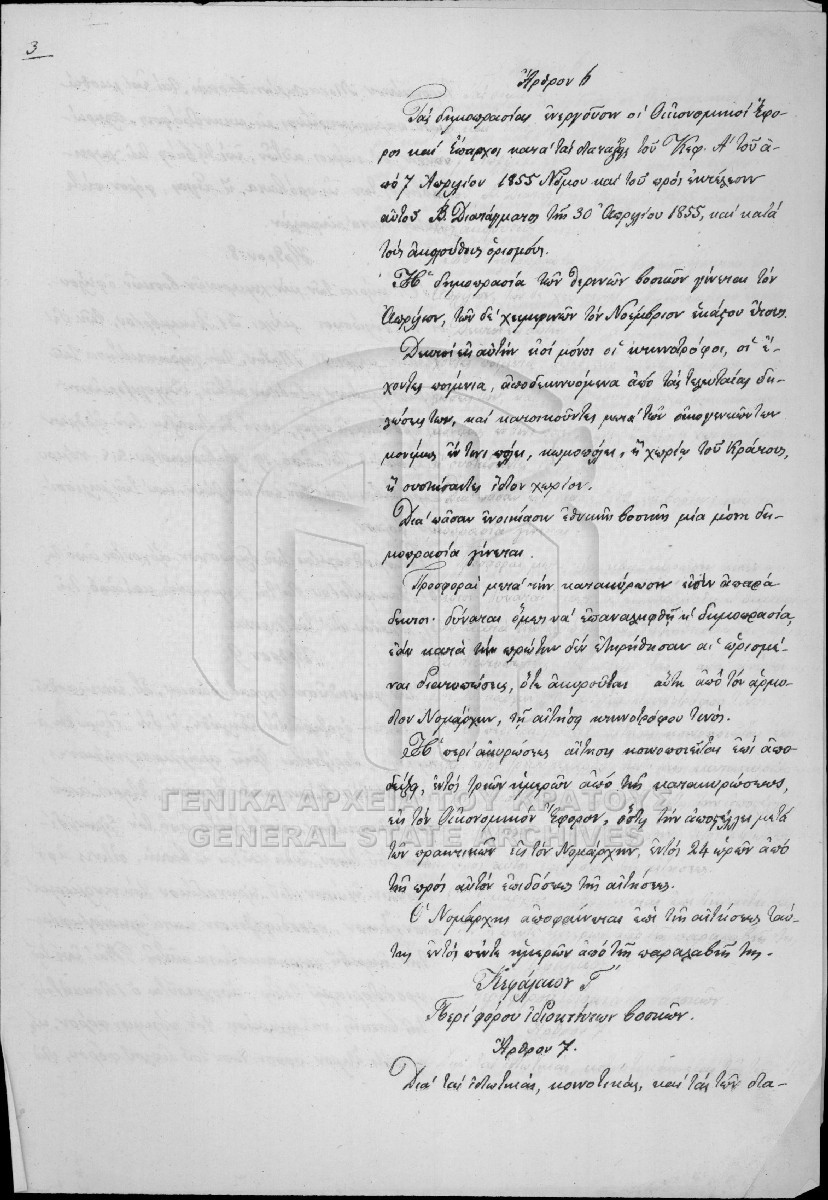 3
Ἄρθρον 6
Τὰς δημοπρασίας ἐνεργοῦσιν οἱ Οἰκονομικοὶ Ἔφο-
ροι καὶ Ἔπαρχοι κατὰ τὰς διατάξεις τοῦ Κεφ. Α' τοῦ ἀ-
πό 7 Ἀπριλίου 1855 Νόμου καὶ τοῦ πρὸς ἐκτέλεσιν
αὐτοῦ Β. Διατάγματος τῆς 30 Ἀπριλίου 1855, καὶ κατὰ
τοὺς ἀκολούθους ὁρισμούς.
Ἡ δημοπρασία τῶν θερινῶν βοσκῶν γίνεται τὸν
Ἀπρίλιον, τῶν δὲ χειμερινῶν τὸν Νοέμβριον ἑκάστου ἔτους.
Δεκτοὶ εἰς αὐτὴν εἰσὶ μόνοι οἱ κτηνοτρόφοι, οἱ ἔ-
χοντες ποίμνια, ἀποδεικνυόμενα ἀπὸ τὰς τελευταίας δη-
λώσεις των, καὶ κατοικοῦντες μετὰ τῶν οἰκογενειῶν των
μονίμως ἔν τινι πόλει, κωμοπόλει, ἢ χωρίῳ τοῦ Κράτους,
ἢ συστήσαντες ἴδιον χωρίον.
Διὰ πᾶσαν ἐνοικίασιν ἐθνικῆς βοσκῆς μία μόνη δη-
μοπρασία γίνεται.
Προσφοραὶ μετὰ τὴν κατακύρωσιν εἰσὶν ἀπαρά-
δεκτοι. δύναται ὅμως νὰ ἐπαναληφθῇ ἡ δημοπρασία,
ἐὰν κατὰ τὴν πρώτην δὲν ἐτηρήθησαν αἱ ὡρισμέ-
ναι διατυπώσεις, ὅτε ἀκυροῦται αὕτη ἀπὸ τὸν ἁρμό-
διον Νομάρχην, τῇ αἰτήσῃ κτηνοτρόφου τινός.
Ἡ περὶ ἀκυρώσεως αἴτησις κοινοποιεῖται ἐπὶ ἀπο-
δείξει, ἐντὸς τριῶν ἡμερῶν ἀπὸ τῆς κατακυρώσεως,
εἰς τὸν Οἰκονομικὸν Ἔφορον, ὅστις τὴν ἀποστέλλει μετὰ
τῶν πρακτικῶν εἰς τὸν Νομάρχην, ἐντὸς 24 ὡρῶν ἀπὸ
τῆς πρὸς αὐτὸν ἐπιδόσεως τῆς αἰτήσεως.
Ὁ Νομάρχης ἀποφαίνεται ἐπὶ τῆς αἰτήσεως ταύ-
της ἐντὸς πέντε ἡμερῶν ἀπὸ τῆς παραλαβῆς της.
Κεφάλαιον Γ'
Περὶ φόρου ἰδιοκτήτων βοσκῶν.
Ἄρθρον 7.
Διὰ τὰς ἰδιωτικὰς, κοινοτικάς, καὶ τὰς τῶν δια-
ΓΕΝΙΚΑ ΑΡΧΕΙΑ ΤΟΥ ΚΡΑΤΟΥΣ
GENERAL STATE ARCHIVES